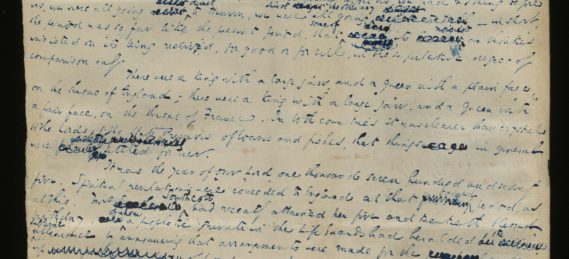 us, we were all going direct to Heaven, we were all going
the period was so far like the present period, that some of its noisiest authorities
insisted on its being received, for good or for evil, in the superlative degree of
comparison only.
There were a king with a large jaw, and a queen with a plain face,
on the throne of England; there were a king with a large jaw, and a queen with
a fair face, on the throne of France. In both countries it was clearer than crystal
to the Lords of the State Preserves of loaves and fishes, that things in general
were settled for ever.
It was the year of our Lord one thousand seven hundred and seventy
five. Spiritual revelations were conceded to England at that period, as
at this. Mrs Southcott had recently attained her five and twentieth blessed
a prophetic private in the Life Guards had heralded the sublime
appearance by announcing that arrangements were made for the